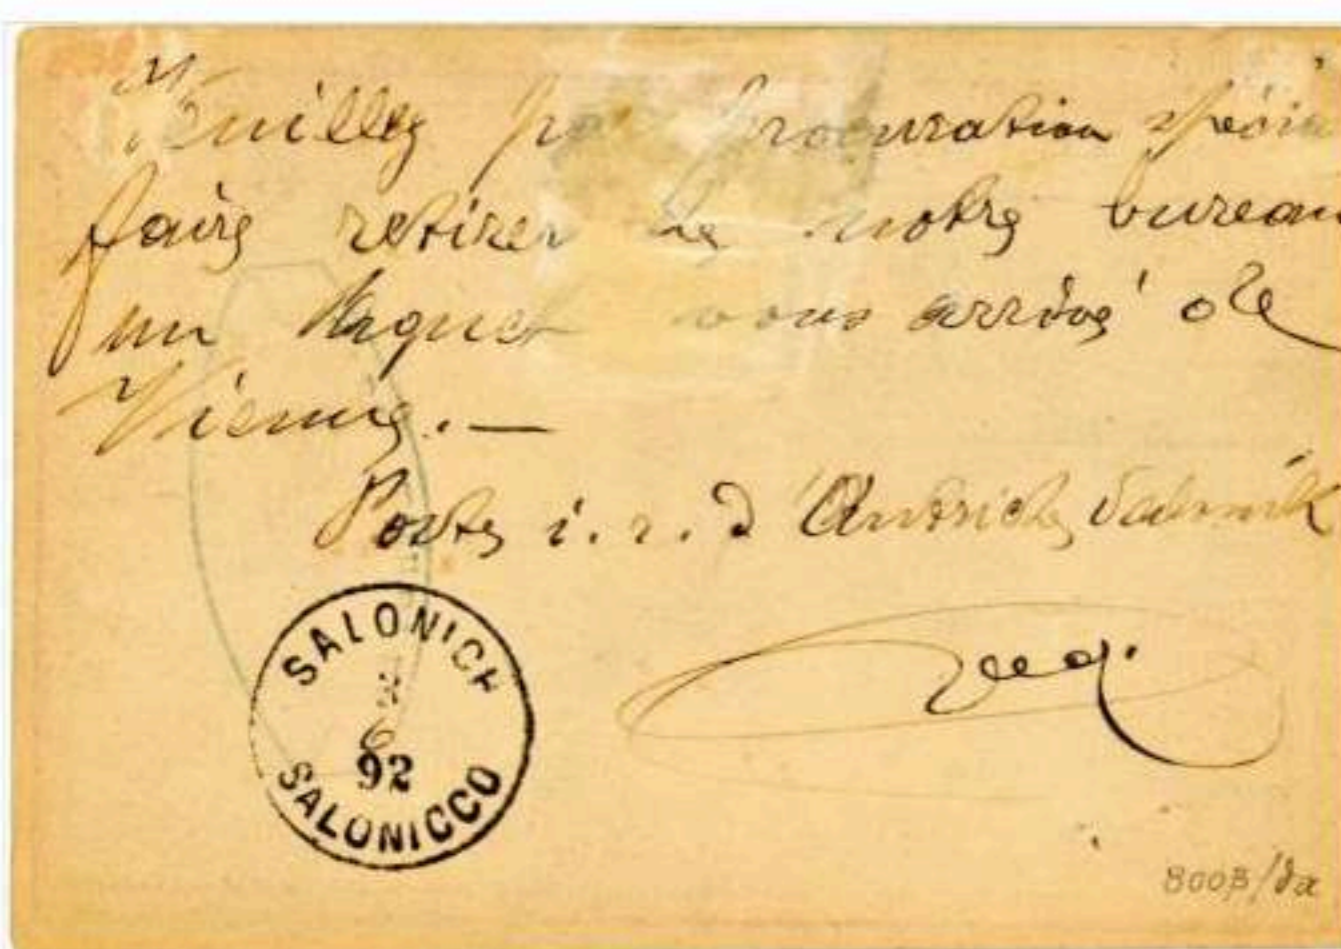 Veuillez par procuration
faire retirer de notre bureau
un paquet vous arrivé de
Vienne. —
Poste i. r. d'Autriche Salonik
SALONICH
6
92
SALONICCO
8003/